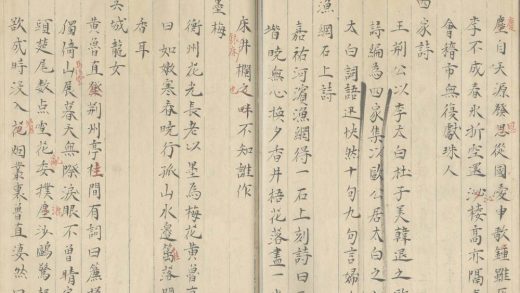 塵自天源發思從國愛申歌鐘雖
李不成春氷折空還沙棲高亦隔
會稽市無復獻珠人
四家詩
王荊公以李太白杜子美韓退之
詩編為四家集以歐公居太白之
太白詞語迅快然十句九句言婦
漁網石上詩
嘉祐河濱漁網得一石上刻詩曰
階晚無心換夕香井梧花落盡一
床井欄之畔不知誰作
墨梅
衡州花光長老以墨為梅花黄魯
曰如嫩寒春曉行孤山水邊籬落間
香耳
吳城龍女
黄魯直登荊州亭柱間有詞曰簾
獨倚山展暮天無際淚眼不曾晴
頭楚尾数点雪花委撲塵沙鷗驚
欲成時没入花烟叢裏魯直凄然曰